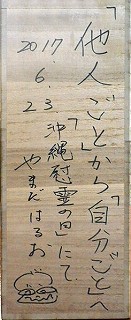 「他人ごと」から「自分ごと」へ
「沖縄慰霊の日」にて
2017.6.23
やまだはるお